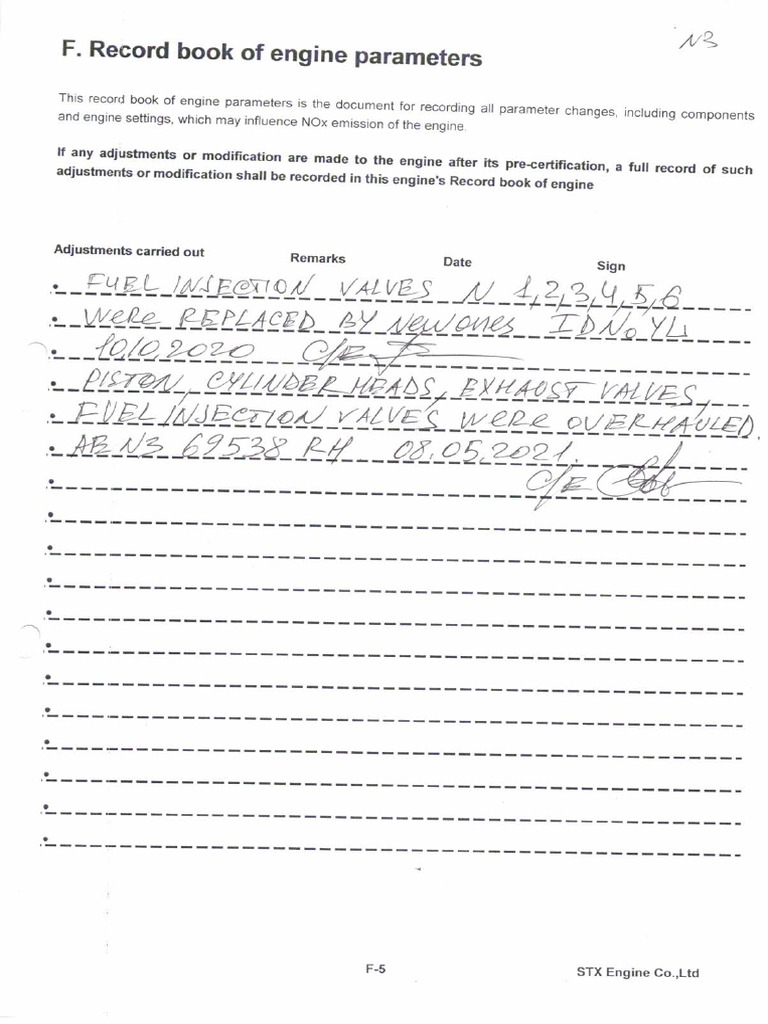 N3
F. Record book of engine parameters
This record book of engine parameters is the document for recording all parameter changes, including components
and engine settings, which may influence NOx emission of the engine.
If any adjustments or modification are made to the engine after its pre-certification, a full record of such
adjustments or modification shall be recorded in this engine's Record book of engine
Adjustments carried out Remarks Date Sign
FUEL INJECTION VALVES N 1,2,3,4,5,6
WERE REPLACED BY NEW ONES ID No YL1
10,10,2020 C/E
PISTON, CYLINDER HEADS, EXHAUST VALVES,
FUEL INJECTION VALVES WERE OVERHAULED.
AE N3 69538 RH 08.05.2021.
C/E
F-5
STX Engine Co.,Ltd